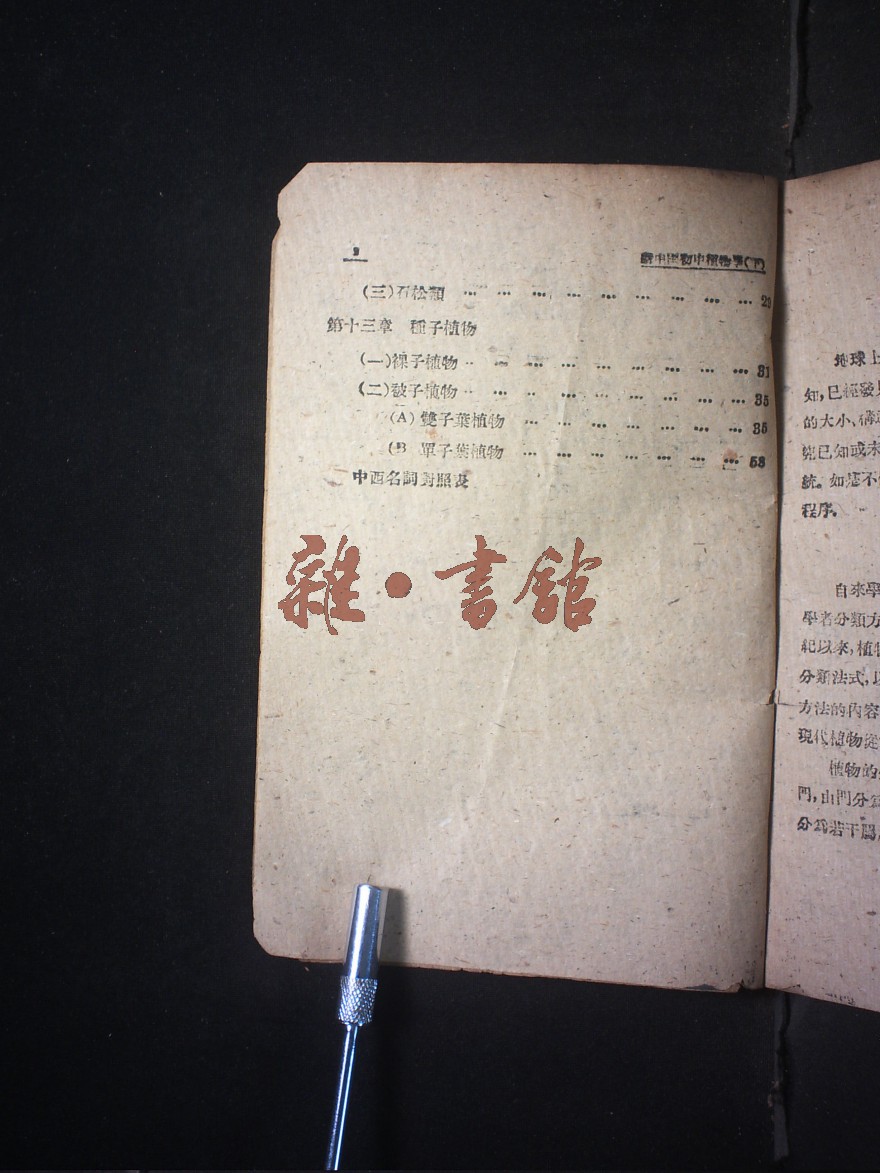 2
新中國初中植物學(下)
(三)石松類 … … … … … … … … … 29
第十三章 種子植物
(一)裸子植物 … … … … … … … … 31
(二)被子植物 … … … … … … … … 35
(A)雙子葉植物 … … … … … … … 35
(B 單子葉植物 … … … … … … … 58
中西名詞對照表
雜·書館
地球上
知,已經發見
的大小、構造
究已知或未
統。如是不
程序。
自來學
學者分類方
紀以來,植物
分類法式,以
方法的內容
現代植物從
植物的
門,由門分爲
分爲若干屬